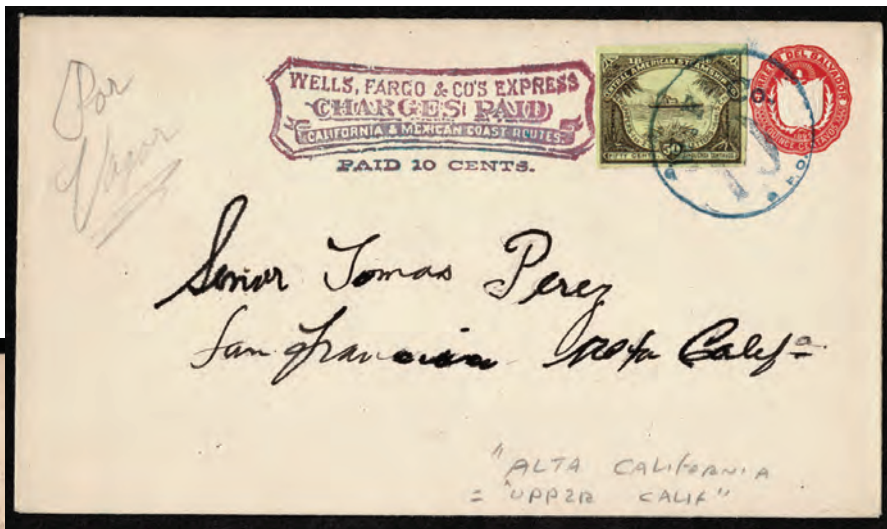 Por
Vapor
WELLS, FARGO & CO'S EXPRESS
CHARGES PAID
CALIFORNIA & MEXICAN COAST ROUTES.
PAID 10 CENTS.
CENTRAL AMERICAN STEAMSHIP
50
FIFTY CENTS
DEL SALVADOR
QUINCE CENTAVOS
Senior Tomas Perez
San Francisco Alta Calif.a
"ALTA CALIFORNIA
= "UPPER CALIF"